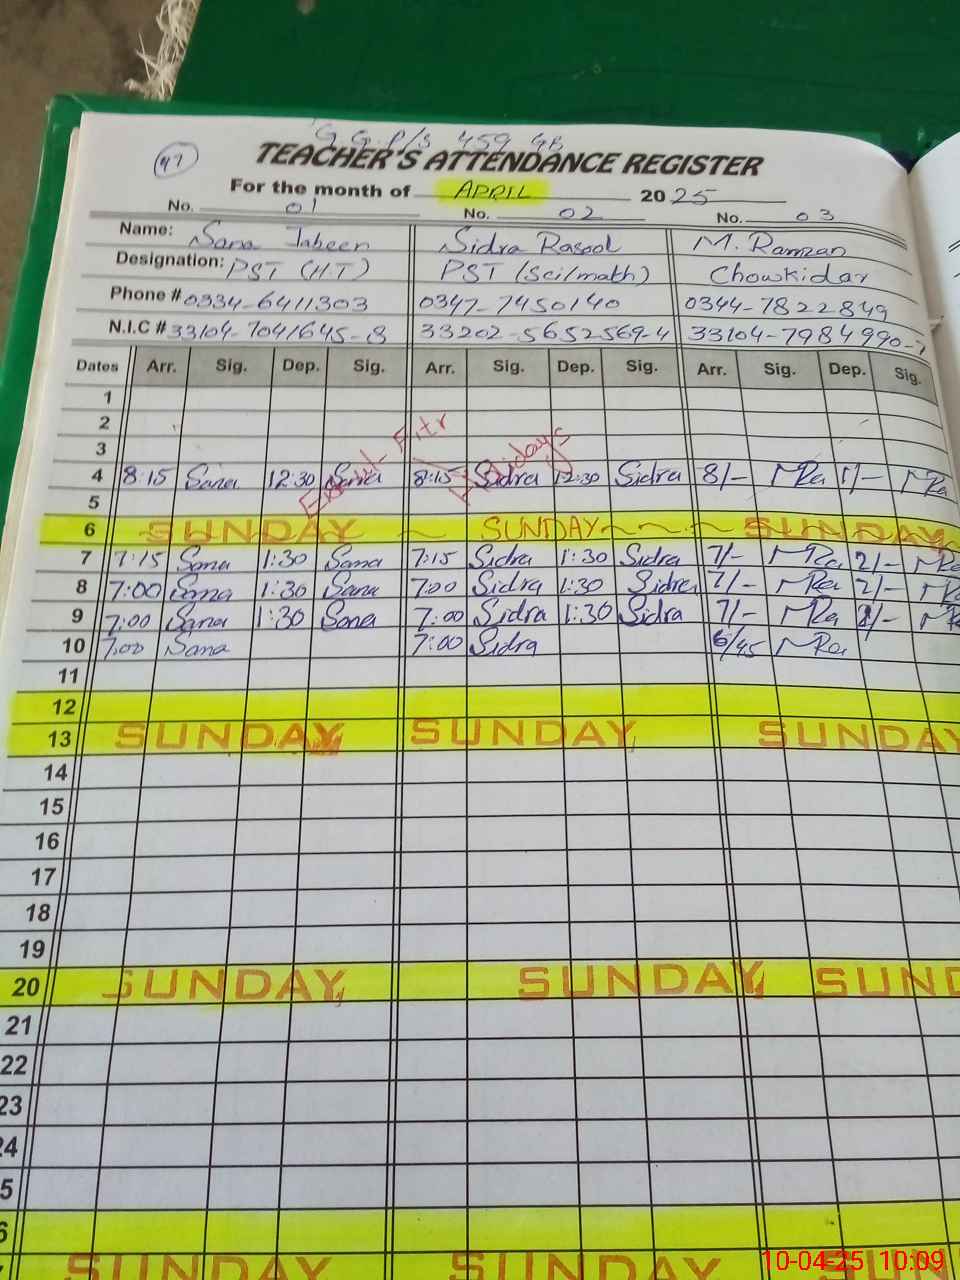 G.G.P/S 459 GB
47
TEACHER'S ATTENDANCE REGISTER
For the month of APRIL 2025
No. 01 No. 02 No. 03
Name: Sana Jabeen Sidra Rasool M. Ramzan
Designation: PST (H.T) PST (Sci/math) Chowkidar
Phone # 0334-6411303 0347-7450140 0344-7822849
N.I.C # 33104-7041645-8 33202-5652569-4 33104-7984990-7
Dates Arr. Sig. Dep. Sig. Arr. Sig. Dep. Sig. Arr. Sig. Dep. Sig.
1
2
3
Eid-ul-Fitr Holidays
4 8:15 Sana 12:30 Sana 8:15 Sidra 12:30 Sidra 8/- MRa 1/- MRa
5
6 SUNDAY SUNDAY SUNDAY
7 7:15 Sana 1:30 Sana 7:15 Sidra 1:30 Sidra 7/- MRa 2/- MRa
8 7:00 Sana 1:30 Sana 7:00 Sidra 1:30 Sidra 7/- MRa 2/- MRa
9 7:00 Sana 1:30 Sana 7:00 Sidra 1:30 Sidra 7/- MRa 2/- MRa
10 7:00 Sana 7:00 Sidra 6/45 MRa
11
12
13 SUNDAY SUNDAY SUNDAY
14
15
16
17
18
19
20 SUNDAY SUNDAY SUND
21
22
23
24
5
6
SUNDAY SUNDAY SUN
10-04-25 10:09